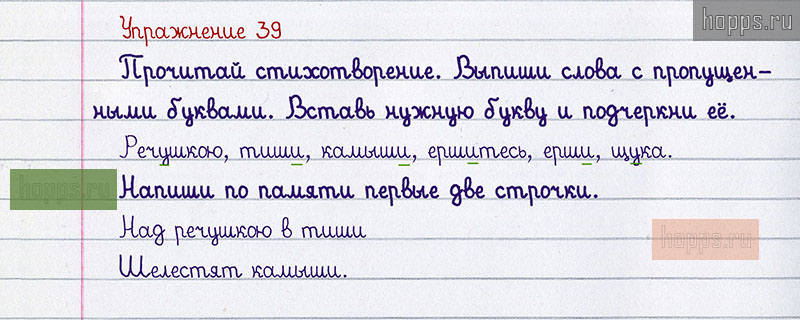 hopps.ru
Упражнение 39
Прочитай стихотворение. Выпиши слова с пропущен-
ными буквами. Вставь нужную букву и подчеркни её.
Речушкою, тиши, камыши, ершитесь, ерши, щука.
hopps.ru
Напиши по памяти первые две строчки.
Над речушкою в тиши
hopps.ru
Шелестят камыши.